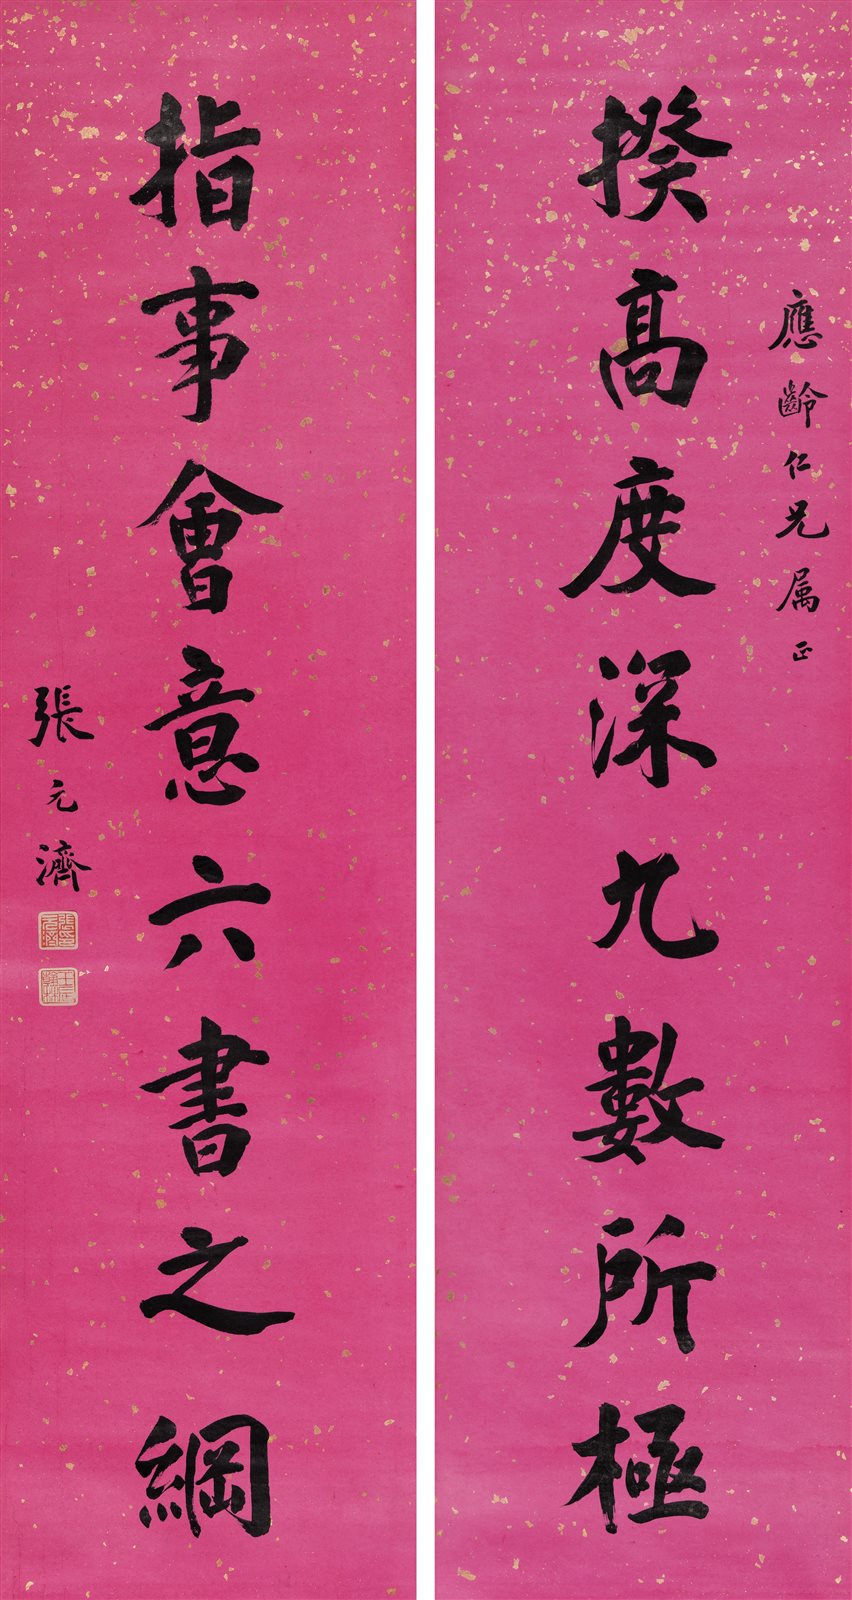 應齡仁兄属正
揆高度深九數所極
指事會意六書之綱
張元濟